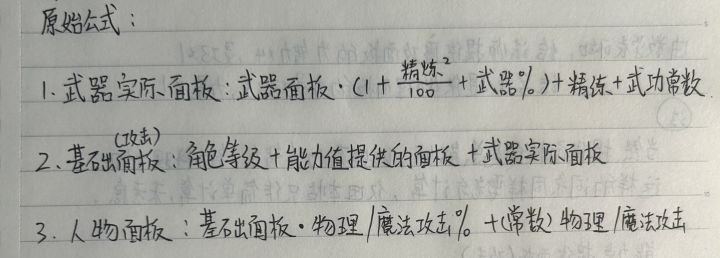 原始公式：
1. 武器实际面板：武器面板·(1+精炼²/100+武器%)+精炼+武功常数
2. 基础(攻击)面板：角色等级+能力值提供的面板+武器实际面板
3. 人物面板：基础面板·物理/魔法攻击% +(常数)物理/魔法攻击